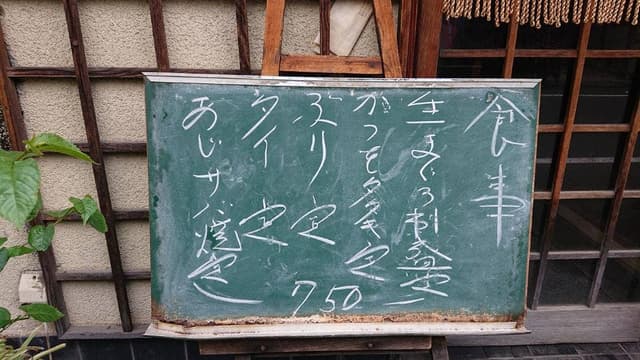 食事
生まぐろ刺盛定
かつをタタキ定
ぶり 定
タイ 定
あじサバ焼定
750